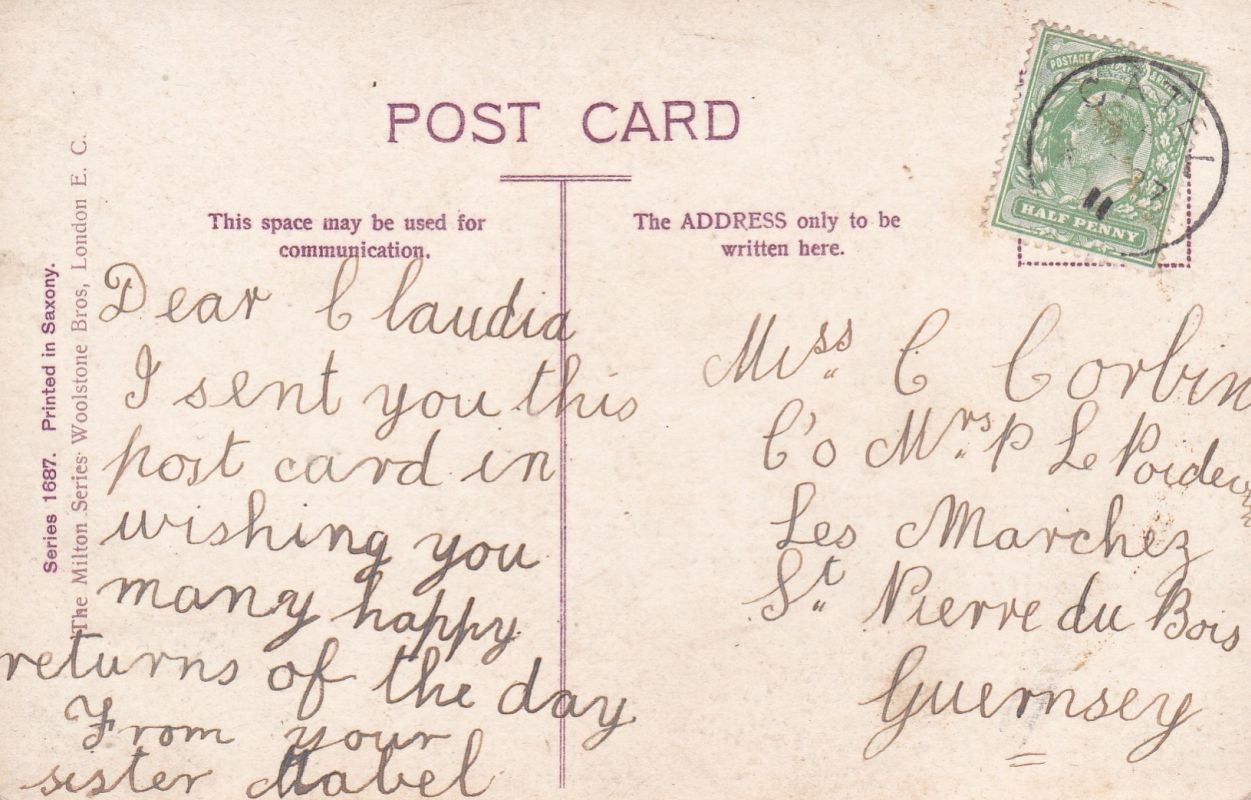 POST CARD
This space may be used for
communication.
The ADDRESS only to be
written here.
POSTAGE
HALF PENNY
CATEL
11
Series 1687. Printed in Saxony.
The Milton Series Woolstone Bros, London E. C.
Dear Claudia
I sent you this
post card in
wishing you
many happy
returns of the day
From your
sister Mabel
Miss C Corbin
C'o Mrs P Le Poidevin
Les Marchez
St Pierre du Bois
Guernsey